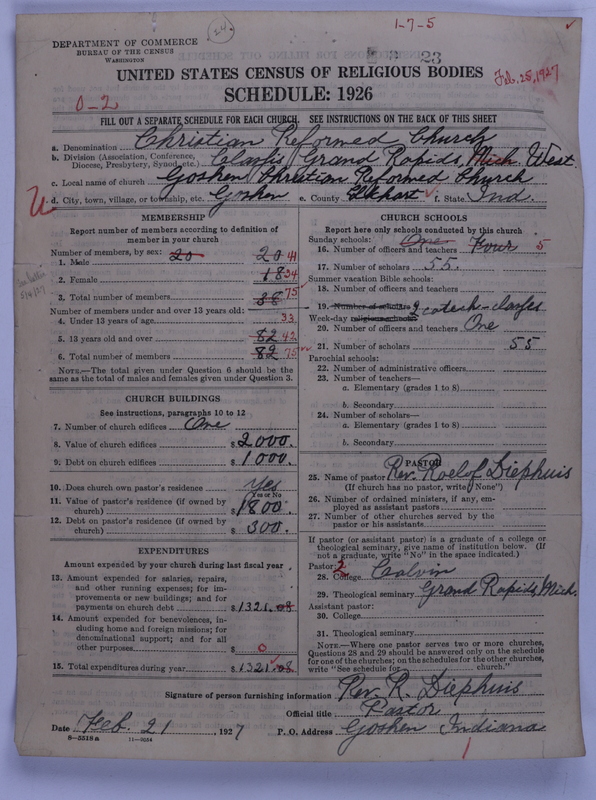 24
1-7-5
DEPARTMENT OF COMMERCE
BUREAU OF THE CENSUS
WASHINGTON
23
Feb. 25, 1927
UNITED STATES CENSUS OF RELIGIOUS BODIES
SCHEDULE: 1926
0-2
FILL OUT A SEPARATE SCHEDULE FOR EACH CHURCH. SEE INSTRUCTIONS ON THE BACK OF THIS SHEET
a. Denomination Christian Reformed Church
b. Division (Association, Conference, Diocese, Presbytery, Synod, etc.) Classis Grand Rapids, Mich. West.
c. Local name of church Goshen Christian Reformed Church
d. City, town, village, or township, etc. Goshen e. County Elkhart f. State Ind.
MEMBERSHIP
Report number of members according to definition of
member in your church
Number of members, by sex: 20
1. Male 20 41
2. Female 18 34
3. Total number of members 38 75
Number of members under and over 13 years old:
4. Under 13 years of age 33
5. 13 years old and over 82 42
6. Total number of members 82 75
NOTE.—The total given under Question 6 should be the
same as the total of males and females given under Question 3.
CHURCH BUILDINGS
See instructions, paragraphs 10 to 12
7. Number of church edifices One
8. Value of church edifices $ 2000.
9. Debt on church edifices $ 1000.
10. Does church own pastor's residence? Yes
Yes or No
11. Value of pastor's residence (if owned by
church) $ 1800.
12. Debt on pastor's residence (if owned by
church) $ 300.
EXPENDITURES
Amount expended by your church during last fiscal year
13. Amount expended for salaries, repairs,
and other running expenses; for im-
provements or new buildings; and for
payments on church debt $ 1321.08
14. Amount expended for benevolences, in-
cluding home and foreign missions; for
denominational support; and for all
other purposes $ 0
15. Total expenditures during year $ 1321.08
CHURCH SCHOOLS
Report here only schools conducted by this church
Sunday schools: One
16. Number of officers and teachers Four 5
17. Number of scholars 55.
Summer vacation Bible schools:
18. Number of officers and teachers
19. Number of scholars 2 catech-classes
Week-day religious schools:
20. Number of officers and teachers One
21. Number of scholars 55
Parochial schools:
22. Number of administrative officers
23. Number of teachers—
a. Elementary (grades 1 to 8)
b. Secondary
24. Number of scholars—
a. Elementary (grades 1 to 8)
b. Secondary
PASTOR
25. Name of pastor Rev. Roelof Diephuis
(If church has no pastor, write "None")
26. Number of ordained ministers, if any, em-
ployed as assistant pastors
27. Number of other churches served by the
pastor or his assistants
If pastor (or assistant pastor) is a graduate of a college or
theological seminary, give name of institution below. (If
not a graduate, write "No" in the space indicated.)
Pastor: 2
28. College Calvin
29. Theological seminary Grand Rapids, Mich.
Assistant pastor:
30. College
31. Theological seminary
NOTE.—Where one pastor serves two or more churches,
Questions 28 and 29 should be answered only on the schedule
for one of the churches; on the schedules for the other churches,
write "See schedule for church."
Signature of person furnishing information Rev. R. Diephuis
Official title Pastor
Date Feb. 21, 1927 P. O. Address Goshen Indiana
8—5518 a 11—3054